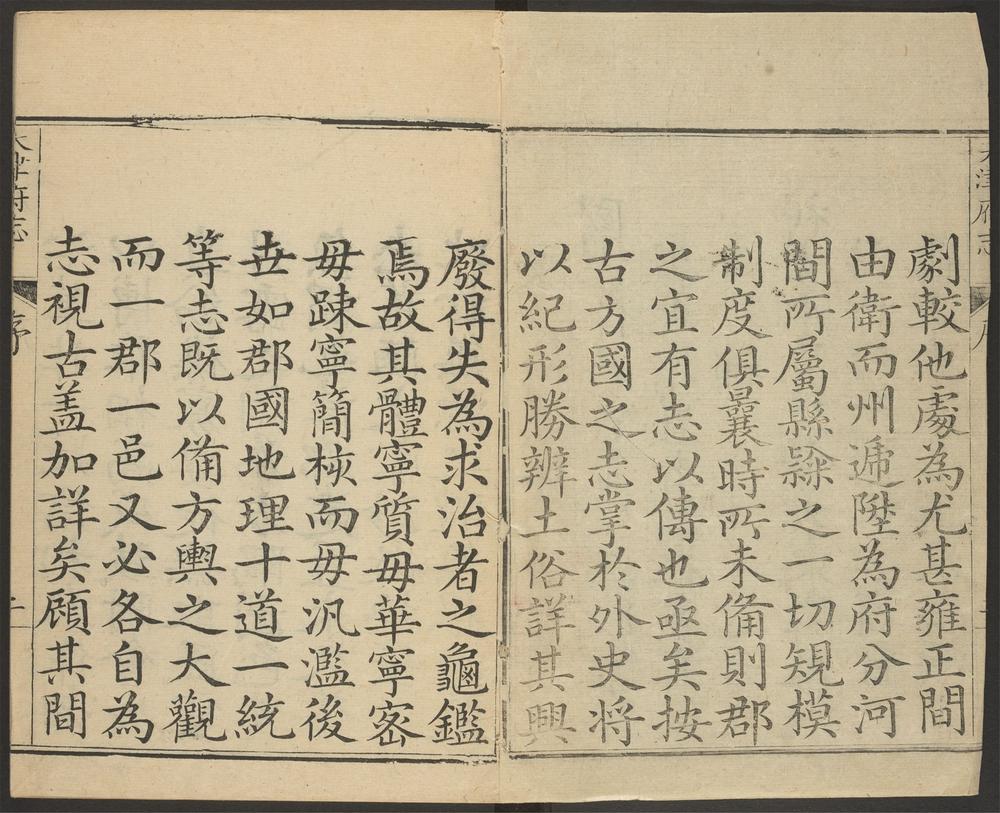 天津府志
劇較他處為尤甚雍正間
由衛而州遞陞為府分河
間所屬縣隸之一切規模
制度俱曩時所未備則郡
之宜有志以傳也亟矣按
古方國之志掌於外史將
以紀形勝辨土俗詳其興
廢得失為求治者之龜鑑
焉故其體寧質毋華寧宻
毋踈寧簡核而毋汎濫後
世如郡國地理十道一統
等志既以備方輿之大觀
而一郡一邑又必各自為
志視古盖加詳矣顧其間
天津府志 序